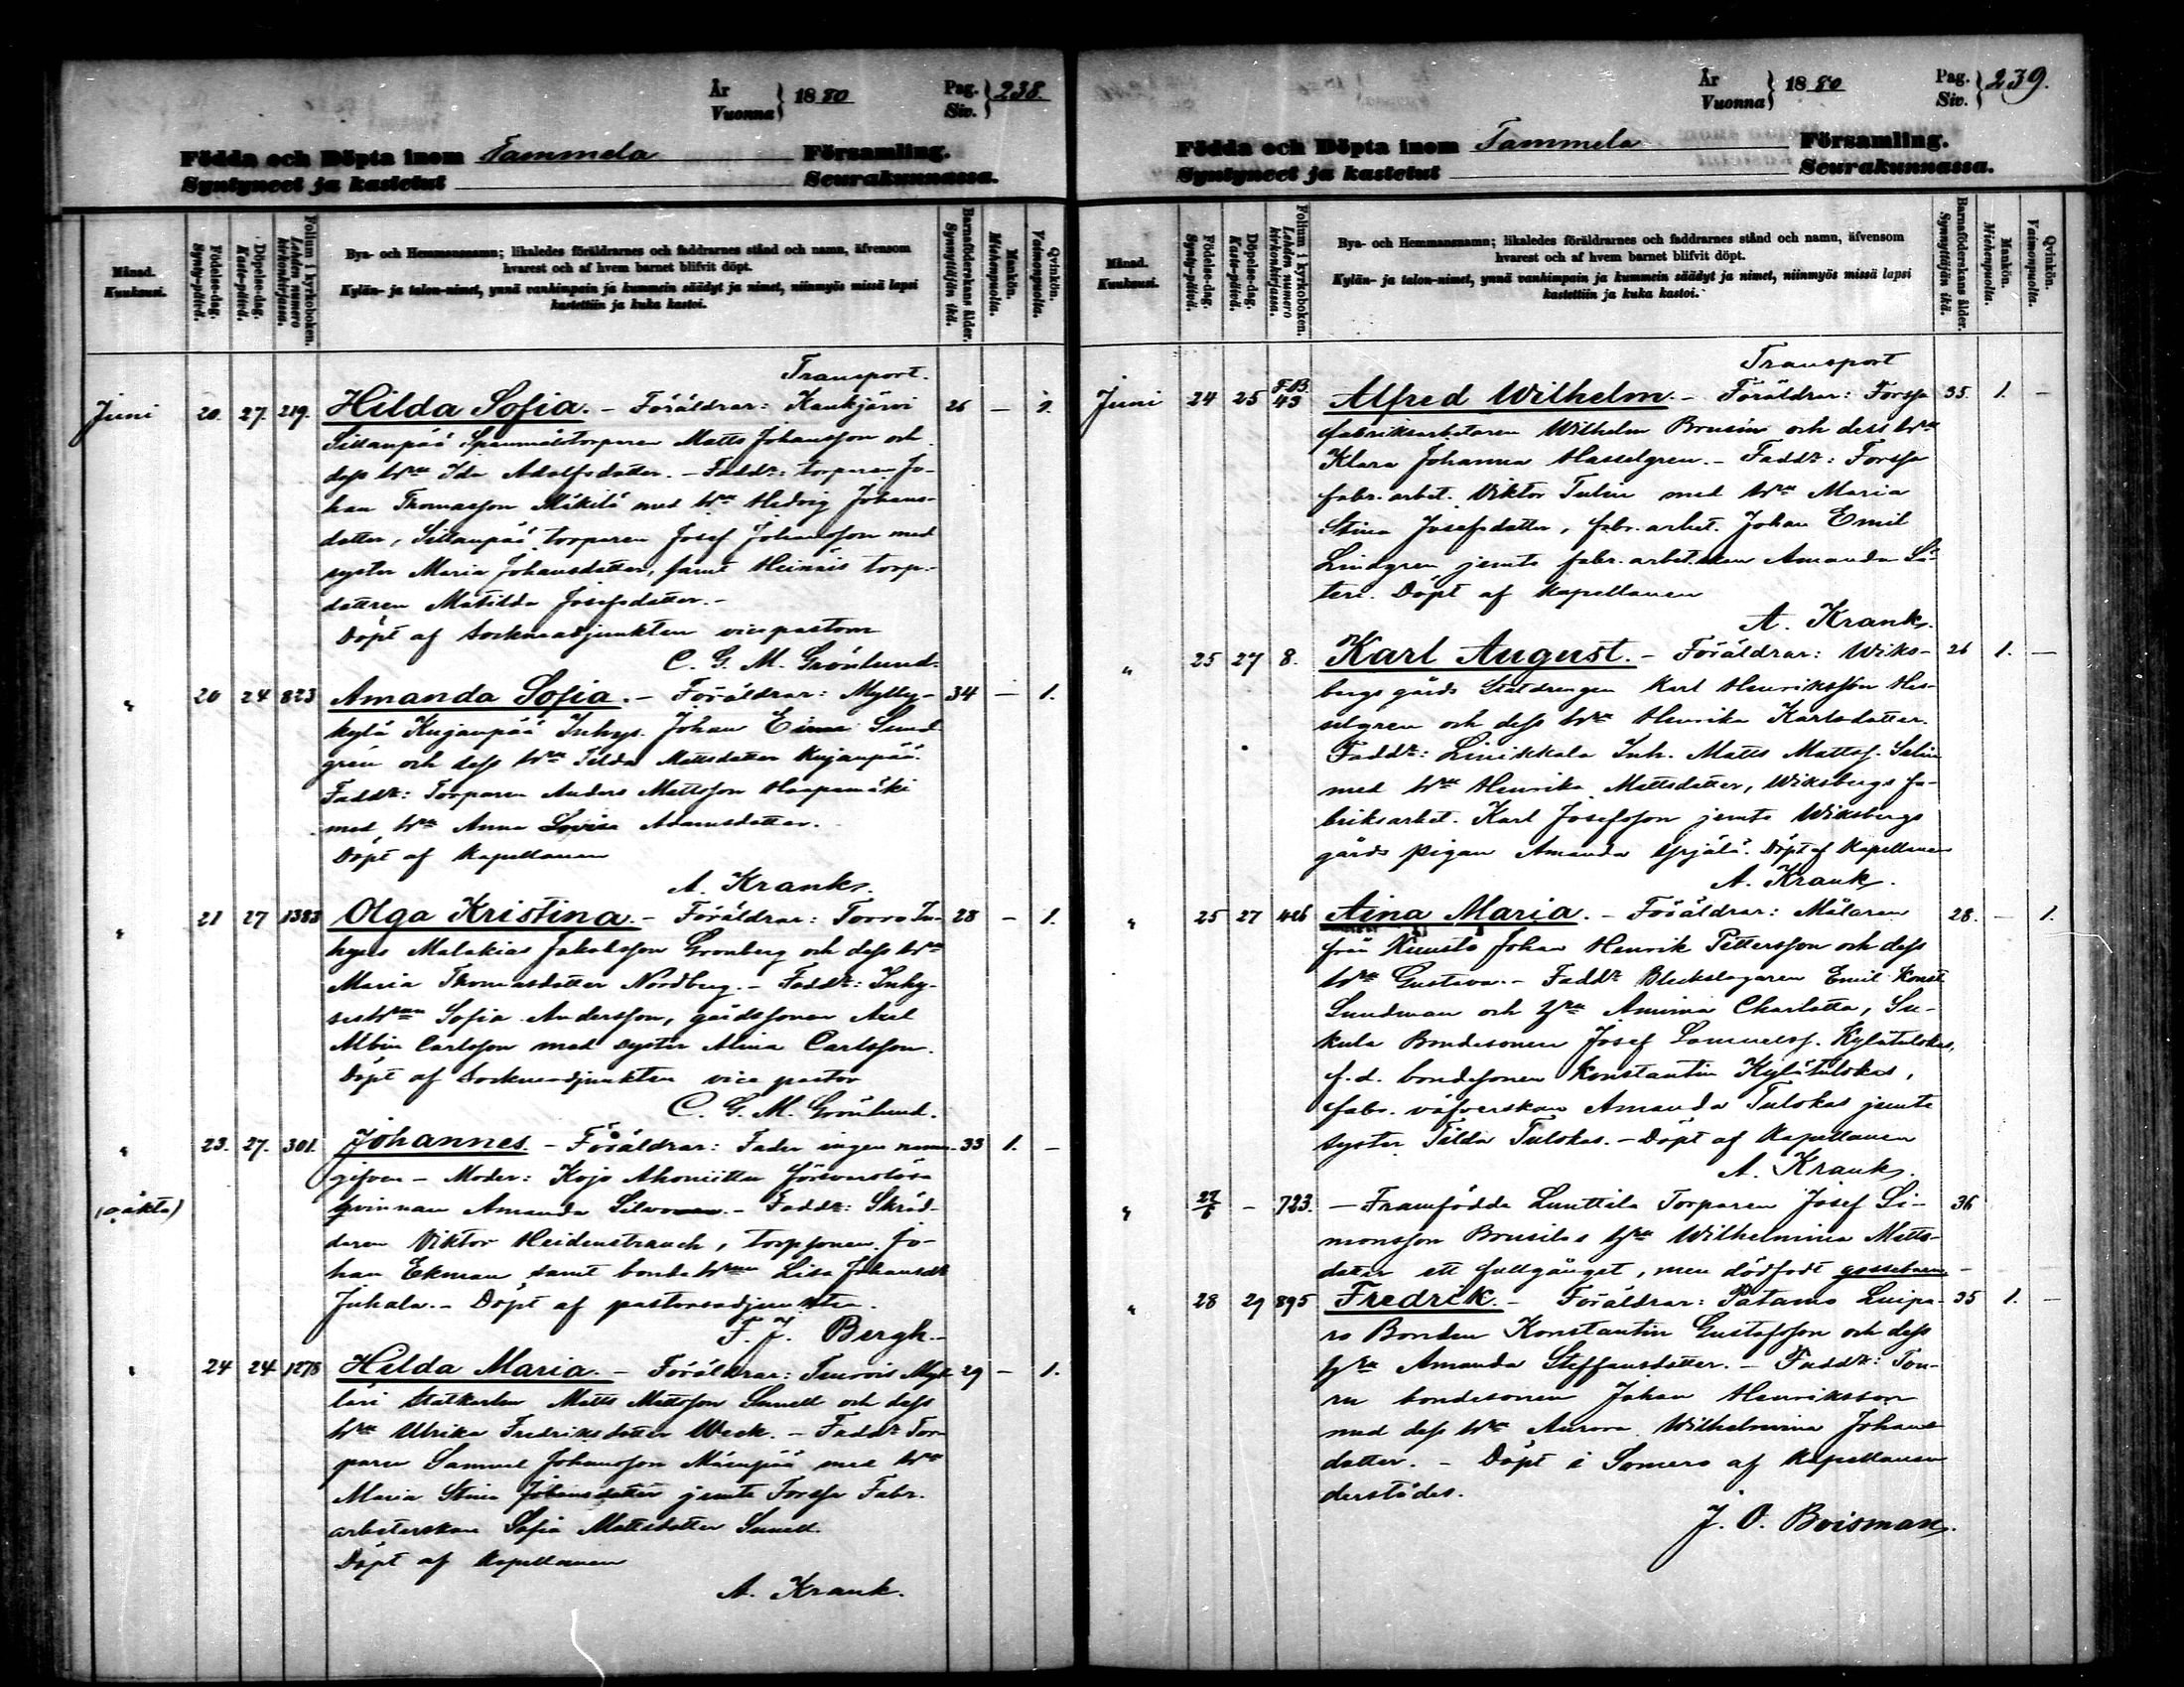 År
Vuonna } 1880
Pag.
Siv. } 238.
Födda och Döpta inom Tammela Församling.
Syntyneet ja kastetut Seurakunnassa.
Månad.
Kuukausi.
Födelse-dag.
Synty-päivä.
Döpelse-dag.
Kaste-päivä.
Folium i kyrkoboken.
Lehden numero kirkonkirjassa.
Bya- och Hemmansnamn; likaledes föräldrarnes och faddrarnes stånd och namn, äfvensom
hvarest och af hvem barnet blifvit döpt.
Kylän- ja talon-nimet, ynnä vanhimpain ja kummein säädyt ja nimet, niinmyös missä lapsi
kastettiin ja kuka kastoi.
Barnaföderskans ålder.
Synnyttäjän ikä.
Mankön.
Miehenpuolta.
Qvinkön.
Vaimonpuolta.
Transport.
Juni 20. 27. 219. Hilda Sofia. – Föräldrar: Kaukjärvi 26 – 1.
Sillanpää Spannmålstorparen Matts Johansson och
dess hru Ida Adolfsdotter. – Faddr: torparen Jo-
han Thomasson Mäkilä med hru Hedvig Johans-
dotter, Sillanpää torparen Josef Johansson med
syster Maria Johansdotter, samt Heinäis torp.
dottren Matilda Josefsdotter. –
Döpt af sockneadjunkten vicepastorn
C. G. M. Grönlund.
" 20 24 823 Amanda Sofia. – Föräldrar: Mylly- 34 – 1.
kylä Kujanpää Inhys. Johan Einar Sund-
grén och dess hru Tilda Mattsdotter Kujanpää.
Faddr: Torparen Anders Mattsson Haapamäki
med hru Anna Lovisa Adamsdotter.
Döpt af Kapellanen
A. Krank.
" 21 27 1383 Olga Kristina. – Föräldrar: Torro In- 28 – 1.
hyses Malakias Jakobsson Grönberg och dess hru
Maria Thomasdotter Nordberg. – Faddr: Inhy-
seshrun Sofia Andersson, gårdssonen Axel
Albin Carlsson med syster Alina Carlsson.
Döpt af Sockneadjunkten vice pastor
C. G. M. Grönlund.
" 23. 27. 301. Johannes. – Föräldrar: Fader ingen namn- 33 1. –
gifven – Moder: Kojo Ahoniitty försvarslösa
(oäkta) qvinnan Amanda – Faddr: Skräd-
daren Viktor Heidenstrauch, torpsonen Jo-
han Ekman samt bondehrun Lisa Johansdr
Juhala. – Döpt af pastorsadjunkten.
F. J. Bergh. –
" 24 24 1278 Hilda Maria. – Föräldrar: 29 – 1.
läri Statkarlen Matts Mattsson Sunell och dess
hru Ulrika Fredriksdotter Week. – Faddr Tor-
paren Samuel Johansson Mäenpää med hru
Maria Stina Johansdotter jemte Forssa Fabr.
arbeterskan Sofia Mattsdotter Sunell.
Döpt af Kapellanen
A. Krank.
År
Vuonna } 1880
Pag.
Siv. } 239.
Födda och Döpta inom Tammela Församling.
Syntyneet ja kastetut Seurakunnassa.
Månad.
Kuukausi.
Födelse-dag.
Synty-päivä.
Döpelse-dag.
Kaste-päivä.
Folium i kyrkoboken.
Lehden numero kirkonkirjassa.
Bya- och Hemmansnamn; likaledes föräldrarnes och faddrarnes stånd och namn, äfvensom
hvarest och af hvem barnet blifvit döpt.
Kylän- ja talon-nimet, ynnä vanhimpain ja kummein säädyt ja nimet, niinmyös missä lapsi
kastettiin ja kuka kastoi.
Barnaföderskans ålder.
Synnyttäjän ikä.
Mankön.
Miehenpuolta.
Qvinkön.
Vaimonpuolta.
Transport
Juni 24 25 F.B. 43 Alfred Wilhelm. – Föräldrar: Forssa 35. 1. –
fabriksarbetaren Wilhelm Brusin och dess hru
Klara Johanna Hasselgren. – Faddr: Forssa
fabr. arbet. Viktor Tulin med hru Maria
Stina Josefsdotter, fabr. arbet. Johan Emil
Lindgren jemte fabr. arbet.skan Amanda Sä-
teri. Döpt af Kapellanen
A. Krank.
" 25 27 8. Karl August. – Föräldrar: Wiks- 26 1. –
bergs gårds Statdrengen Karl Henriksson Has-
selgren och dess hru Henrika Karlsdotter.
Faddr: Linikkala Inh. Matts Mattss. Salin
med hru Henrika Mattsdotter, Wiksbergs fa-
briksarbet. Karl Josefsson jemte Wiksbergs
gårds pigan Amanda Yrjälä. Döpt af Kapellanen
A. Krank.
" 25 27 426 Aina Maria. – Föräldrar: Målaren 28. – 1.
från Kuusto Johan Henrik Pettersson och dess
hru Gustava. – Faddr Bleckslagaren Emil Konst.
Sundman och hru Amina Charlotta, Su-
kula Bondesonen Josef Samuelss. Kylätulokas,
f.d. bondesonen Konstantin Kylätulokas,
fabr. väfverskan Amanda Tulokas jemte
syster Tilda Tulokas. – Döpt af Kapellanen
A. Krank.
" 27/6 – 723. – Framfödde Lunttila Torparen Josef Si- 36
monsson Brusilas hru Wilhelmina Matts-
dotter ett fullgånget, men dödfödt gossebarn. –
" 28 29 895 Fredrik. – Föräldrar: Patamo Luipa- 35 1. –
ro Bonden Konstantin Gustafsson och dess
hru Amanda Steffansdotter. – Faddr: Tou-
ru bondesonen Johan Henriksson
med dess hru Aurora Wilhelmina Johans-
dotter. – Döpt i Somero af Kapellanen
derstädes.
J. O. Boisman.